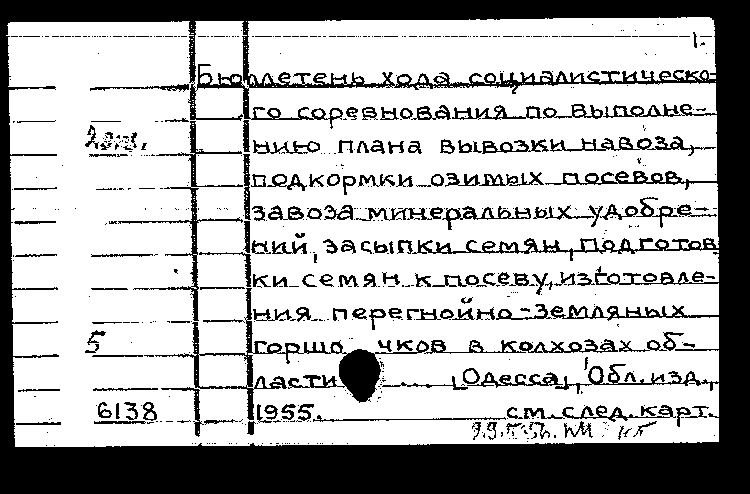 1.
Бюллетень хода социалистическо-
го соревнования по выполне-
2 экз.
нию плана вывозки навоза,
подкормки озимых посевов,
завоза минеральных удобре-
ний, засыпки семян, подготов
ки семян к посеву, изготовле-
ния перегнойно-земляных
5 горшо чков в колхозах об-
ласти .... [Одесса], Обл. изд.,
6138 1955. см. след. карт.